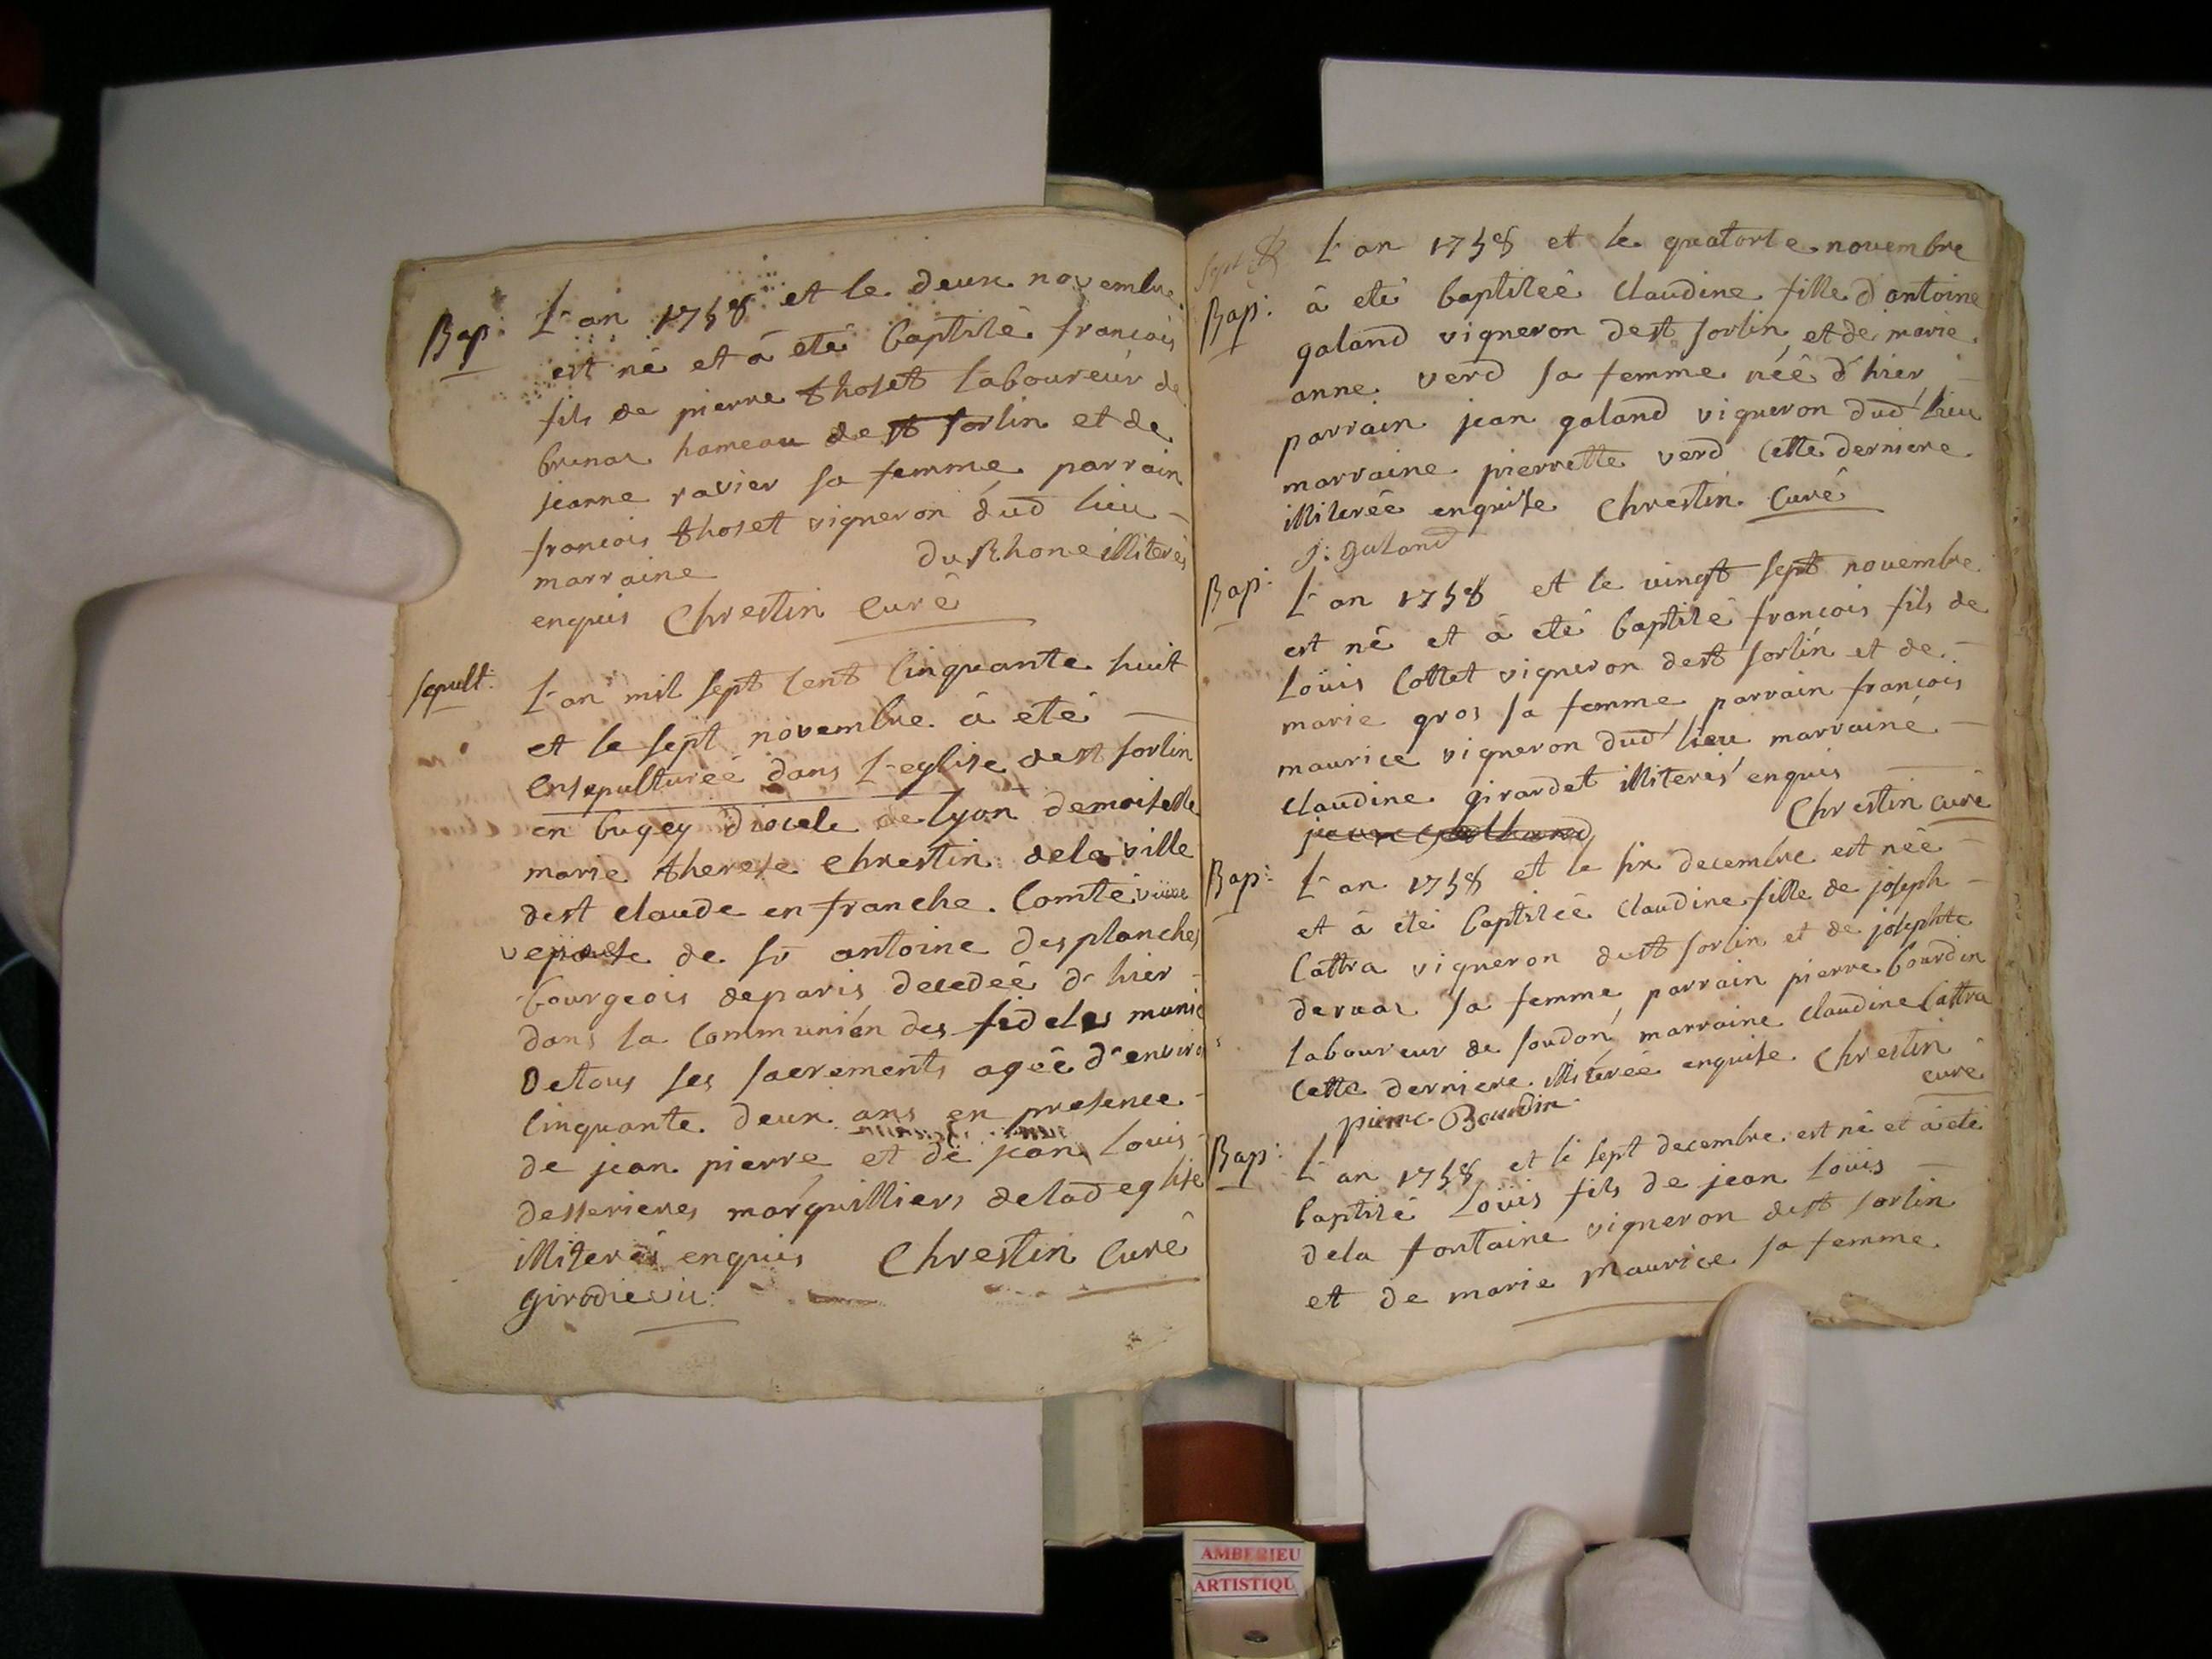 Bap: L'an 1758 et le deux novembre
est né et à eté baptisé francois
fils de pierre thoset laboureur de
brenas hameau de st sorlin et de
jeanne ravier sa femme parrain
francois thoset vigneron dud lieu
marraine du Rhone illiterés
enquis Chrestin Curé
sepult: L'an mil sept cent cinquante huit
et le sept novembre à eté
ensepulturée dans l'eglise de st sorlin
en bugey diocese de lyon demoiselle
marie therese Chrestin de la ville
de st claude en franche Comté veuve
de sr antoine desplanches
bourgeois de paris decedeé d'hier
dans la Communión des fideles munie
de tous ses sacrements agée d'enviro
cinquante deux ans en presence
de jean pierre et de jean louis
desserieres marguilliers de lad eglise
illiterés enquis Chrestin Curé
L'an 1758 et le quatorse novembre
Bap: à eté baptiseé claudine fille d'antoine
galand vigneron de st sorlin et de marie
anne verd sa femme néé d'hier
parrain jean galand vigneron dud lieu
marraine pierrette verd cette derniere
illiterée enquise Chrestin Curé
J: Galand
Bap: L'an 1758 et le vingt sept novembre
est né et à eté baptisé francois fils de
Loüis Cottet vigneron de st sorlin et de
marie gros sa femme parrain francois
maurice vigneron dud lieu marraine
claudine girardet illiterés enquis
Chrestin curé
Bap: L'an 1758 et le six decembre est néé
et à eté baptiseé claudine fille de joseph
Cattra vigneron de st sorlin et de josephte
dervas sa femme, parrain pierre bourdin
laboureur de soudon, marraine claudine Cattra
cette derniere illiterée enquise Chrestin
curé
pierre Bourdin
Bap: L'an 1758 et le sept decembre est né et à eté
baptisé Loüis fils de jean Loüis
dela fontaine vigneron de st sorlin
et de marie Maurice sa femme
AMBERIEU
ARTISTIQU